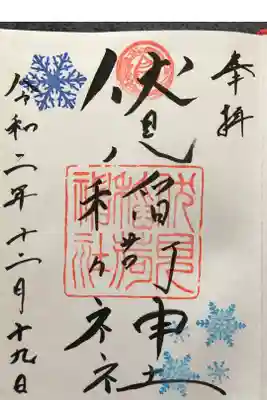 奉拝
伏見稲荷神社
伏見
稲荷
神社
令和二年十二月十九日